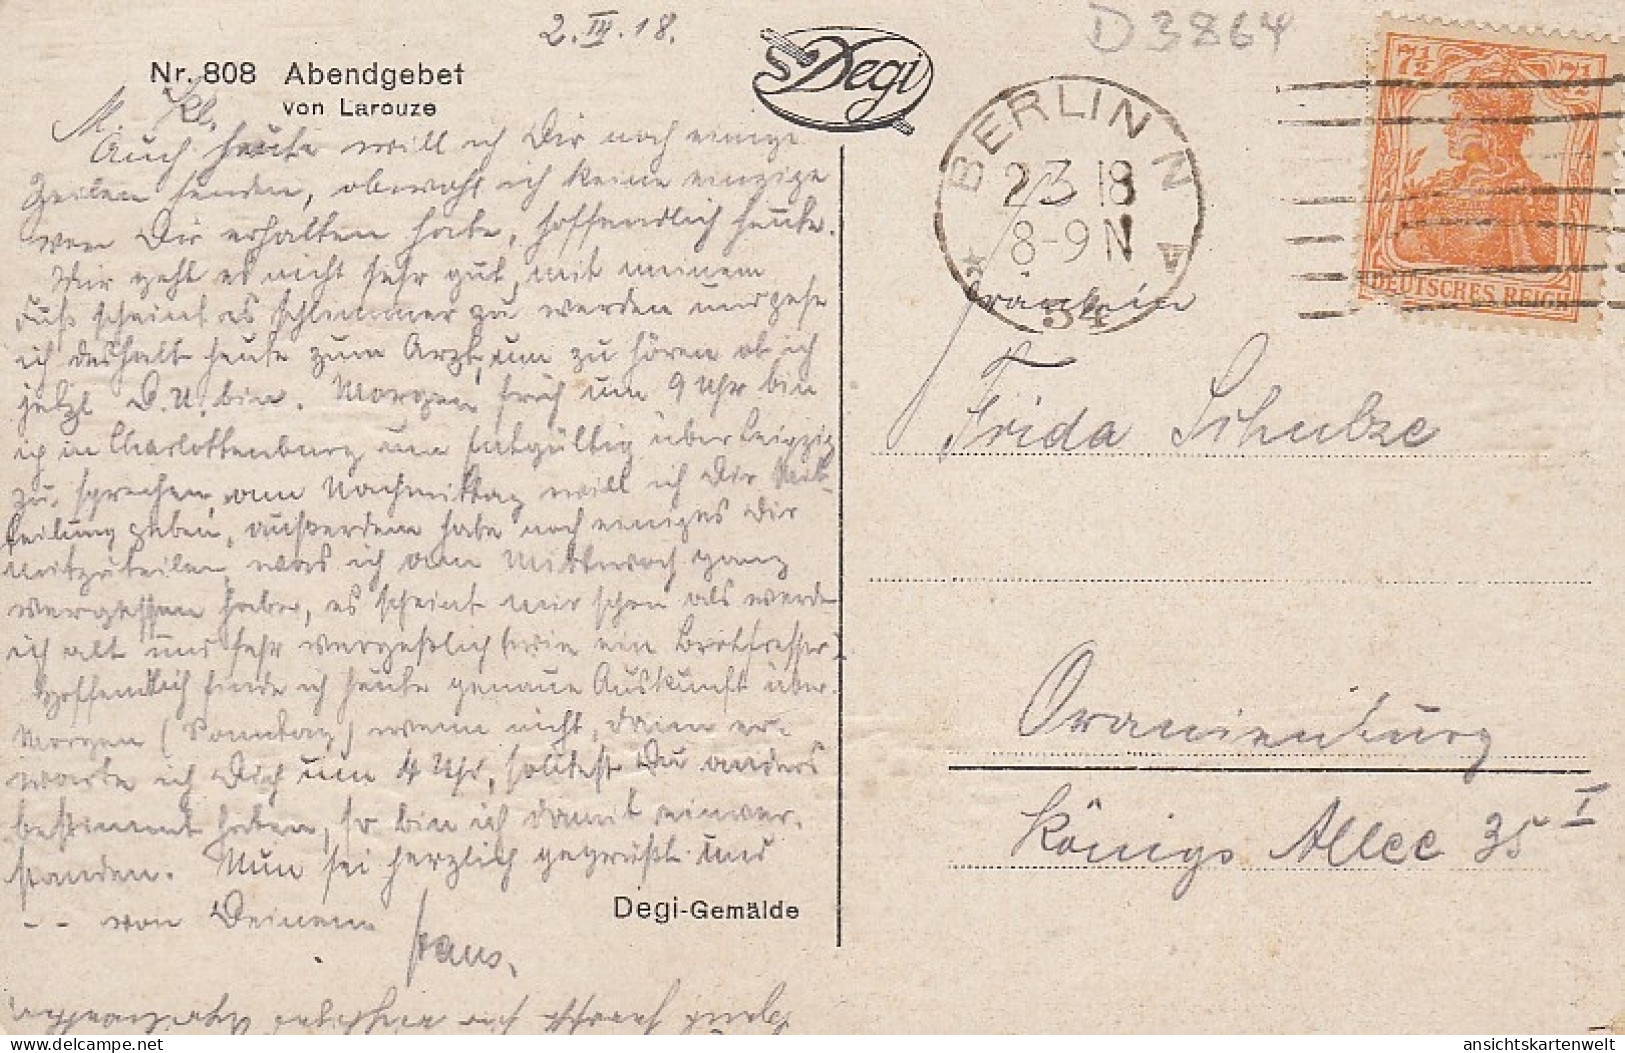 2. III. 18.
D 3864
Nr. 808 Abendgebet
von Larouze
Degi
M. Kl.
Auch heute will ich Dir noch einige
Zeilen senden, obwohl ich keine einzige
von Dir erhalten habe, hoffendlich heute.
Mir geht es nicht sehr gut, mit meinem
Fuß scheint es schlimmer zu werden und gehe
ich deshalb heute zum Arzt, um zu hören ob ich
jetzt D.U. bin. Morgen früh um 9 Uhr bin
ich in Charlottenburg um entgültig über Leipzig
zu sprechen, am Nachmittag will ich Dir Mit-
teilung geben, außerdem habe noch einiges Dir
mitzuteilen, was ich am Mittwoch ganz
vergessen habe, es scheint mir schon als werde
ich alt und sehr vergeßlich (wie ein Brotfresser)
Hoffendlich finde ich heute genaue Auskunft über
Morgen (Sonntag) wenn nicht, dann er-
warte ich Dich um 4 Uhr, solltest Du anders
bestimmt haben, so bin ich damit einver-
standen. Nun sei herzlich gegrüßt und
-- von Deinem
Hans.
Degi-Gemälde
BERLIN N
2.3.18
8-9 N
54
7½ 7½
DEUTSCHES REICH
Fräulein
Frida Schulze
Oranienburg
Königs Allee 35 I
delcampe.net
ansichtskartenwelt